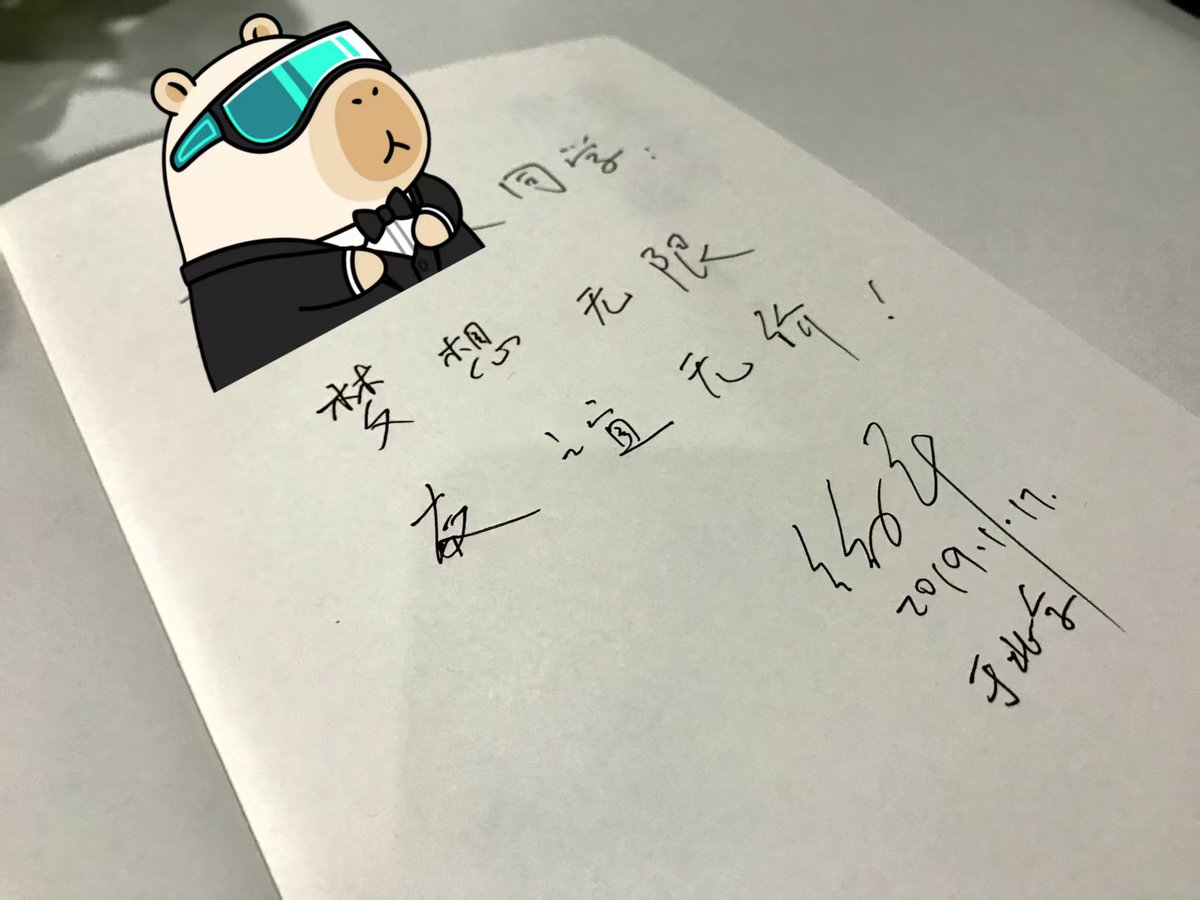 同学:
梦想无限
友谊无价!
2019.11.17.
于北京